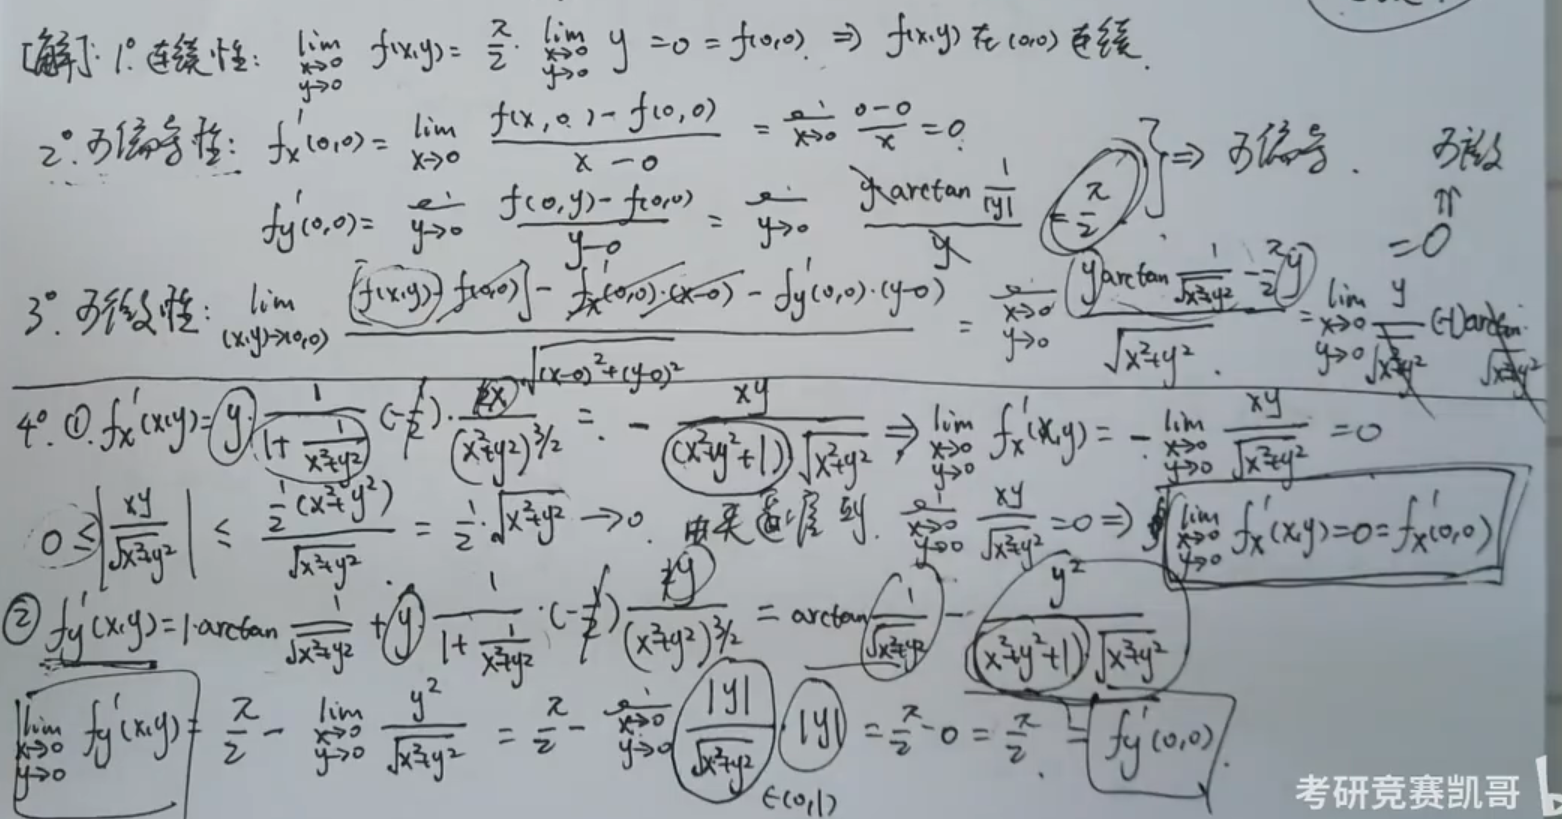 [解]: 1° 连续性: lim_{x→0 y→0} f(x,y) = π/2 · lim_{x→0 y→0} y = 0 = f(0,0). ⇒ f(x,y) 在 (0,0) 连续.
2°. 可偏导性: f'x(0,0) = lim_{x→0} (f(x,0) - f(0,0))/(x-0) = lim_{x→0} (0-0)/x = 0.
f'y(0,0) = lim_{y→0} (f(0,y) - f(0,0))/(y-0) = lim_{y→0} (y arctan 1/|y|)/y = π/2 } ⇒ 可偏导. 可微
3°. 可微性: lim_{(x,y)→(0,0)} ([f(x,y) - f(0,0)] - f'x(0,0)·(x-0) - f'y(0,0)·(y-0))/√((x-0)²+(y-0)²) = lim_{x→0 y→0} (y arctan 1/√(x²+y²) - π/2 y)/√(x²+y²) = lim_{x→0 y→0} y/√(x²+y²) (-1) arctan √(x²+y²) = 0
4° ① f'x(x,y) = y · 1/(1+1/(x²+y²)) (-1/2) · 2x/(x²+y²)^{3/2} = - xy/((x²+y²+1)√(x²+y²)) ⇒ lim_{x→0 y→0} f'x(x,y) = - lim_{x→0 y→0} xy/√(x²+y²) = 0
0 ≤ |xy/√(x²+y²)| ≤ (1/2 (x²+y²))/√(x²+y²) = 1/2 · √(x²+y²) → 0. 由夹逼准则. lim_{x→0 y→0} xy/√(x²+y²) = 0 ⇒ lim_{x→0 y→0} f'x(x,y) = 0 = f'x(0,0)
② f'y(x,y) = 1·arctan 1/√(x²+y²) + y · 1/(1+1/(x²+y²)) · (-1/2) 2y/(x²+y²)^{3/2} = arctan 1/√(x²+y²) - y²/((x²+y²+1)√(x²+y²))
lim_{x→0 y→0} f'y(x,y) = π/2 - lim_{x→0 y→0} y²/√(x²+y²) = π/2 - lim_{x→0 y→0} |y|/√(x²+y²) · |y| = π/2 - 0 = π/2 = f'y(0,0).
∈(0,1)
考研竞赛凯哥